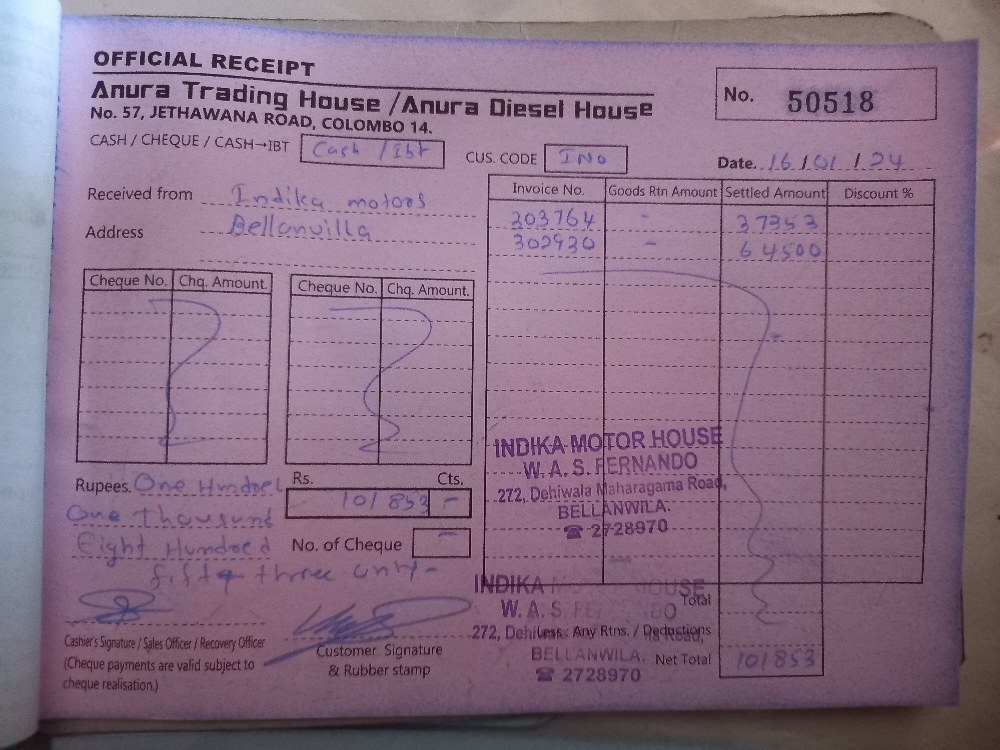 OFFICIAL RECEIPT
Anura Trading House /Anura Diesel House
No. 57, JETHAWANA ROAD, COLOMBO 14.
No. 50518
CASH / CHEQUE / CASH→IBT Cash / Ibt
CUS. CODE INO
Date. 16 / 01 / 24
Received from Indika motors
Address Bellanvilla
Invoice No. Goods Rtn Amount Settled Amount Discount %
303764 - 37353
302930 - 64500
Cheque No. Chq. Amount.
Cheque No. Chq. Amount.
INDIKA MOTOR HOUSE
W. A. S. FERNANDO
272, Dehiwala Maharagama Road,
BELLANWILA.
☎ 2728970
Rupees. One Hundred
One thousand
Eight Hundred
fifty three only -
Rs. Cts.
101 853 -
No. of Cheque -
INDIKA MOTOR HOUSE
W. A. S. FERNANDO
272, Dehiwala Road,
BELLANWILA.
☎ 2728970
Total
Less. Any Rtns. / Deductions
Net Total 101853
Cashier's Signature / Sales Officer / Recovery Officer
(Cheque payments are valid subject to
cheque realisation.)
Customer Signature
& Rubber stamp